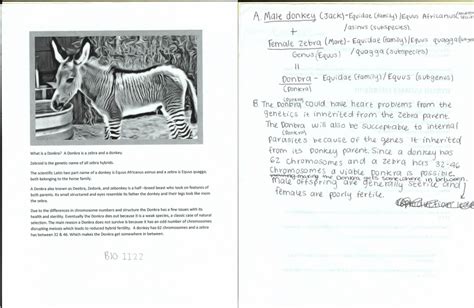 What is a Donkra? A Donkra is a zebra and a donkey.
Zebroid is the genetic name of all zebra hybrids.
The scientific Latin two part name of a donkey is Equus Africanus asinus and a zebra is Equus quagga,
both belonging to the horse family.
A Donkra also known as Deebra, Zedonk, and zebonkey is a half -breed beast who took on features of
both parents. Its small structured and eyes resemble its father the donkey and their legs took the mother.
Due to the differences in chromosome numbers and structure the Donkra has a few issues with its
health and sterility. Eventually the Donkra dies out because it is a weak species, a classic case of natural
selection. The main reason a Donkra does not survive is because it has an odd number of chromosomes
disrupting meiosis which leads to reduced hybrid fertility. A donkey has 62 Chromosomes and a zebra
has between 32 & 46. Which makes the Donkra get somewhere in between.
BIO 1122
A. Male donkey (Jack)-Equidae (family)/Equus Africanus
/asinus (subspecies).
+
Female Zebra (Mare)-Equidae (family)/Equus quagga
Genus/Equus / quagga (subspecies)
=
Donbra - Equidae (family)/Equus (subgenus)
(Donkra)
(Donkra)
B. The Donbra could have heart problems from the
genetics it inherited from the zebra parent.
The Donbra will also be succeptable to internal
(Donkra)
Parasites because of the genes it inherited
from its donkey parent. Since a donkey has
62 chromosomes and a zebra has 32-46
Chromosomes a viable Donkra is possible.
making the Donkra gets somewhere in between.
Male offspring are generally sterile and
females are poorly fertile.